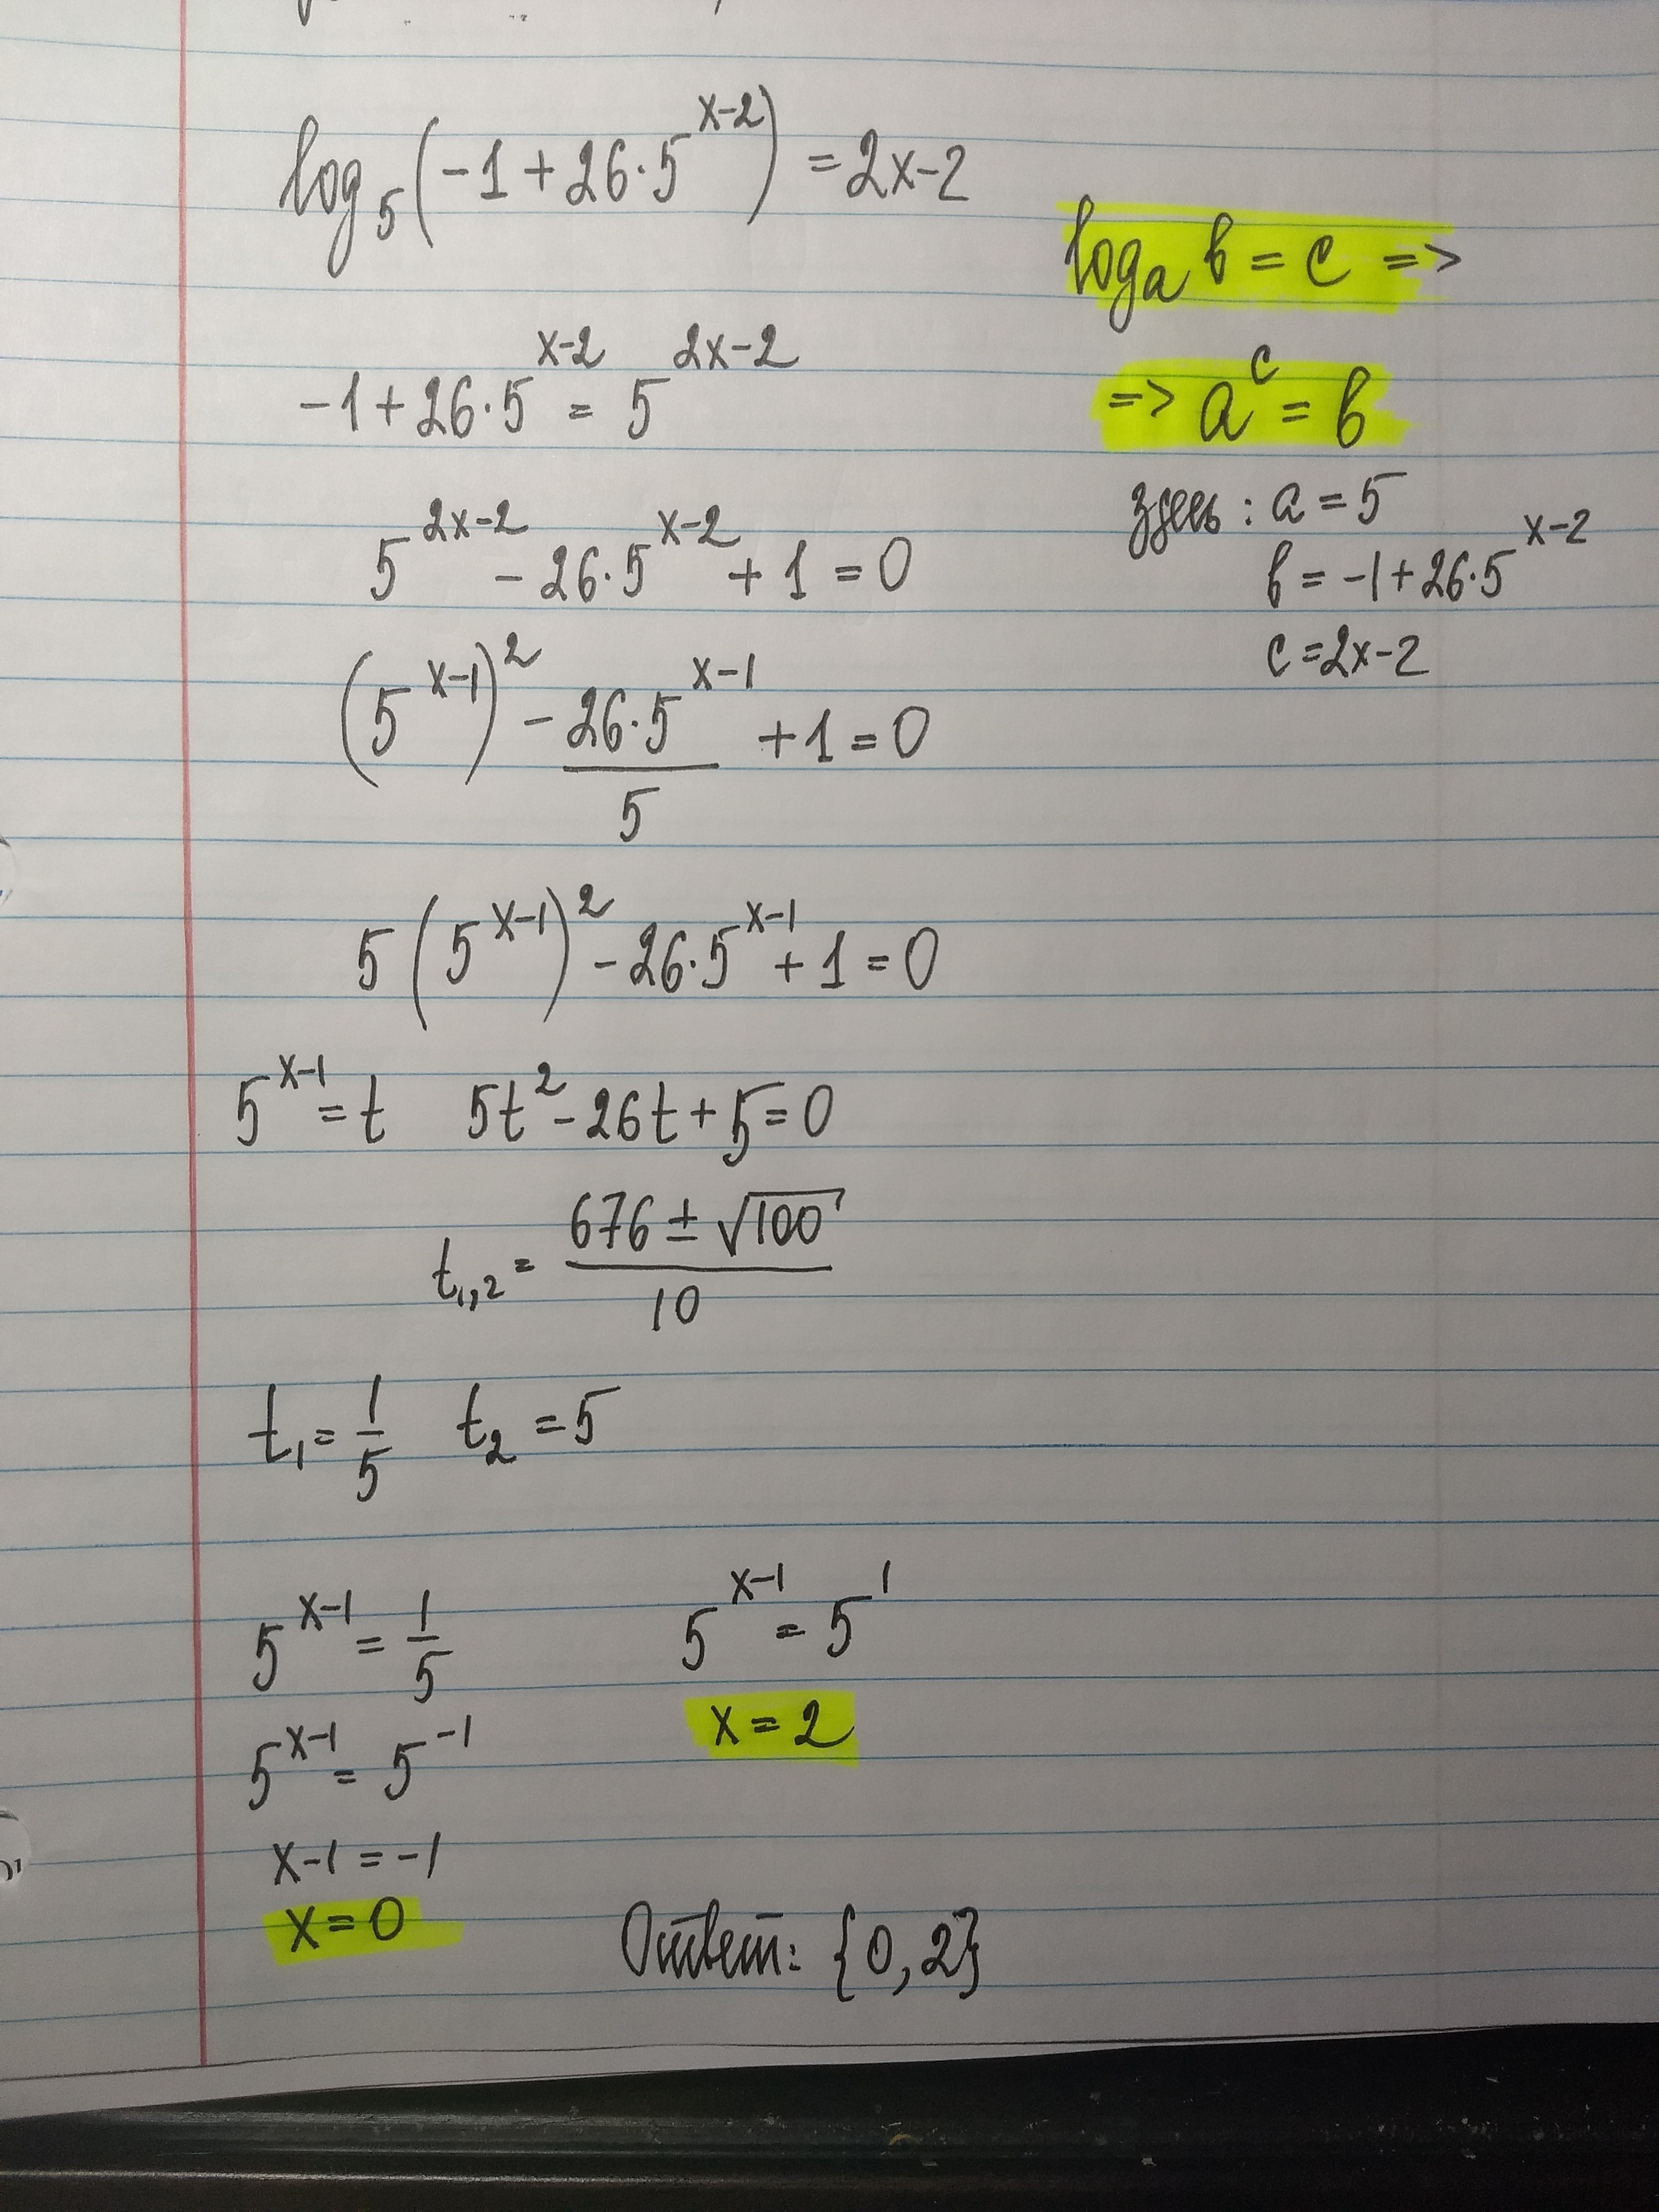 log₅(-1+26·5^(x-2)) = 2x-2
logₐ b = c =>
=> a^c = b
здесь: a = 5
b = -1+26·5^(x-2)
c = 2x-2
-1+26·5^(x-2) = 5^(2x-2)
5^(2x-2) - 26·5^(x-2) + 1 = 0
(5^(x-1))² - (26·5^(x-1))/5 + 1 = 0
5(5^(x-1))² - 26·5^(x-1) + 1 = 0
5^(x-1) = t   5t² - 26t + 5 = 0
t₁,₂ = (676 ± √100)/10
t₁ = 1/5   t₂ = 5
5^(x-1) = 1/5   5^(x-1) = 5^1
5^(x-1) = 5^(-1)   x = 2
x-1 = -1
x = 0
Ответ: {0, 2}